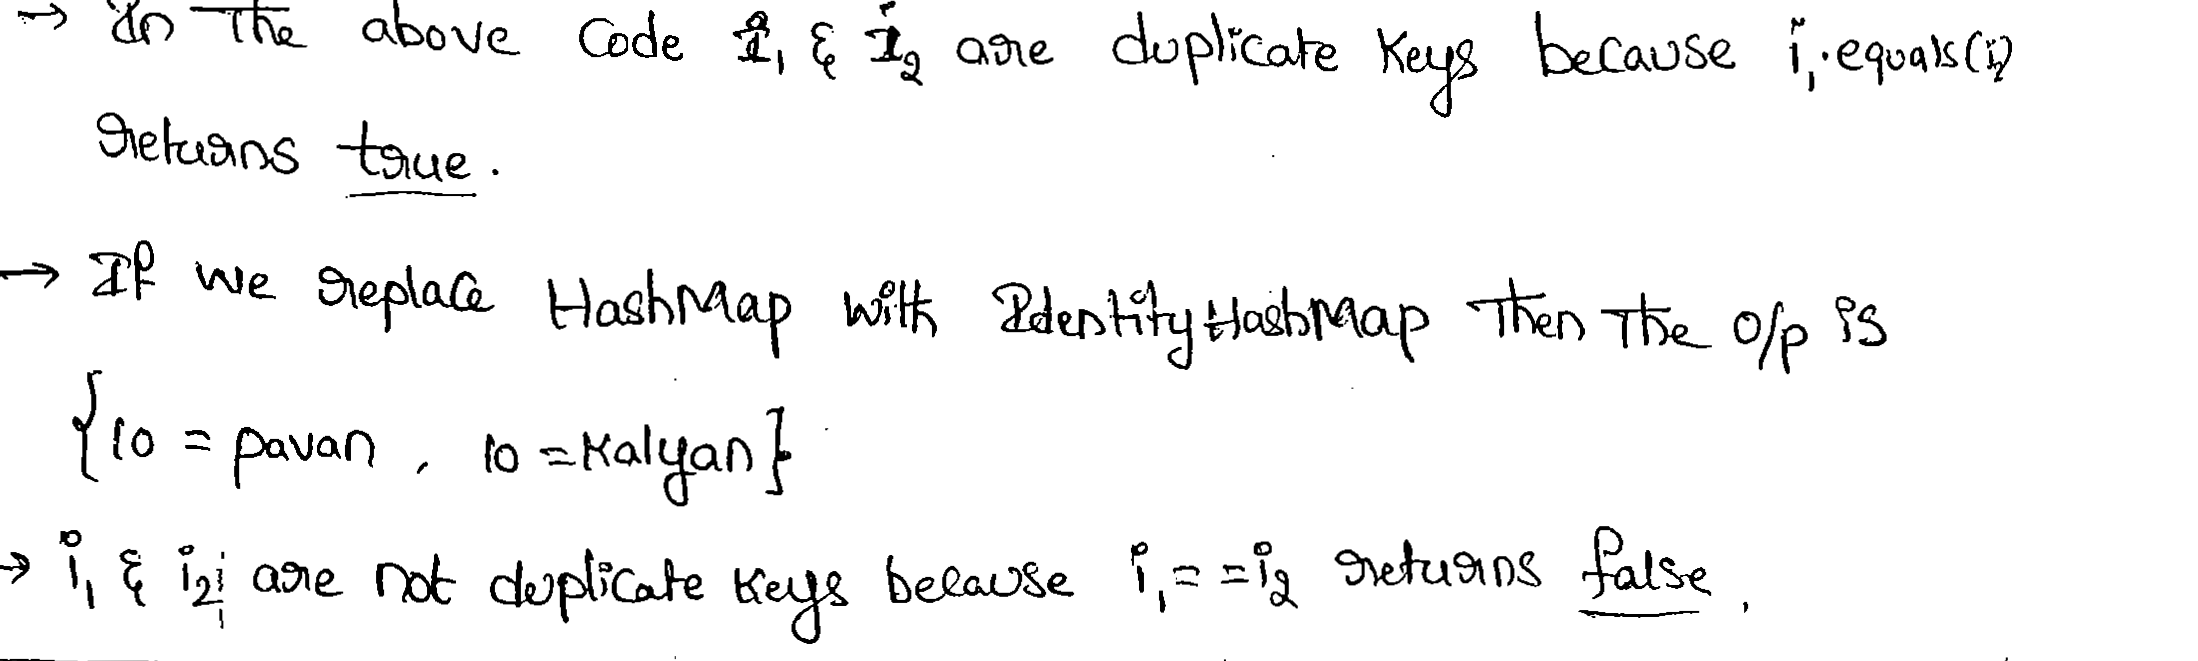 → In The above Code I₁ & I₂ are duplicate Keys because i₁.equals(i₂)
returns true.
→ If we replace HashMap with IdentityHashMap Then The o/p is
{10 = pavan, 10 = Kalyan}
→ i₁ & i₂ are not duplicate Keys because i₁ == i₂ returns false.